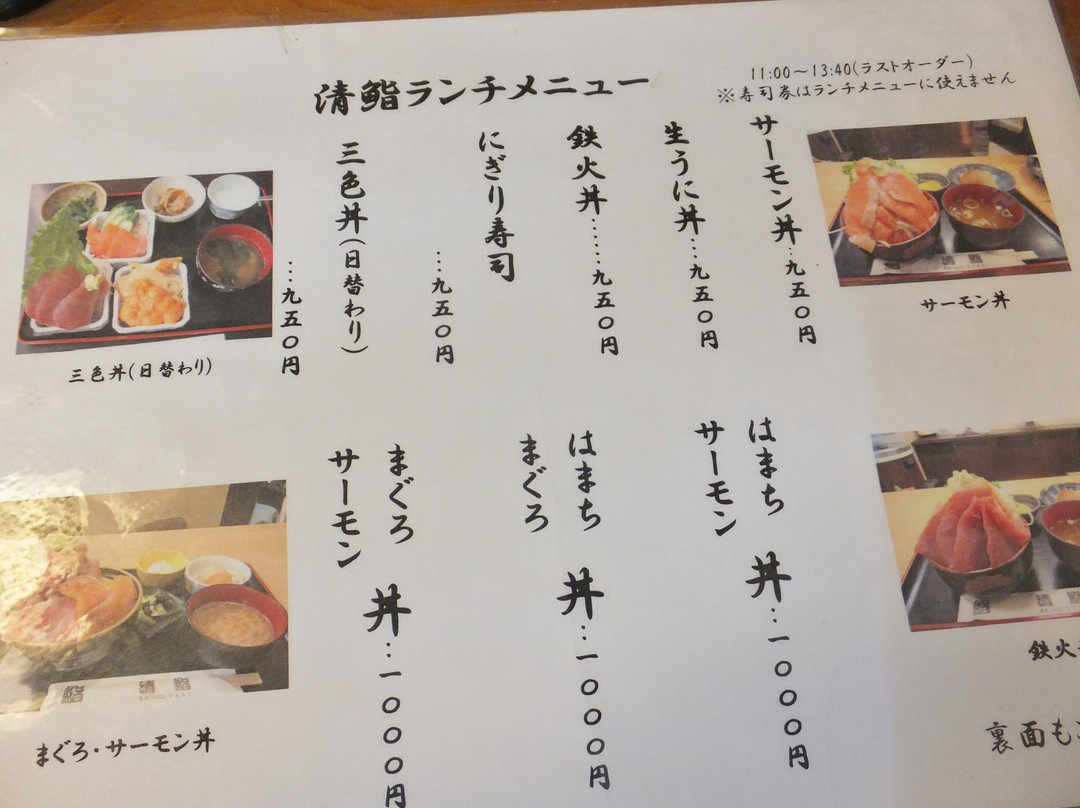 清鮨ランチメニュー
11:00～13:40(ラストオーダー)
※寿司券はランチメニューに使えません
サーモン丼…九五〇円
生うに丼…九五〇円
鉄火丼……九五〇円
にぎり寿司
…九五〇円
三色丼(日替わり)
…九五〇円
はまち
サーモン
丼…一〇〇〇円
はまち
まぐろ
丼…一〇〇〇円
まぐろ
サーモン
丼…一〇〇〇円
三色丼(日替わり)
サーモン丼
まぐろ・サーモン丼
鉄火
裏面も
清鮨